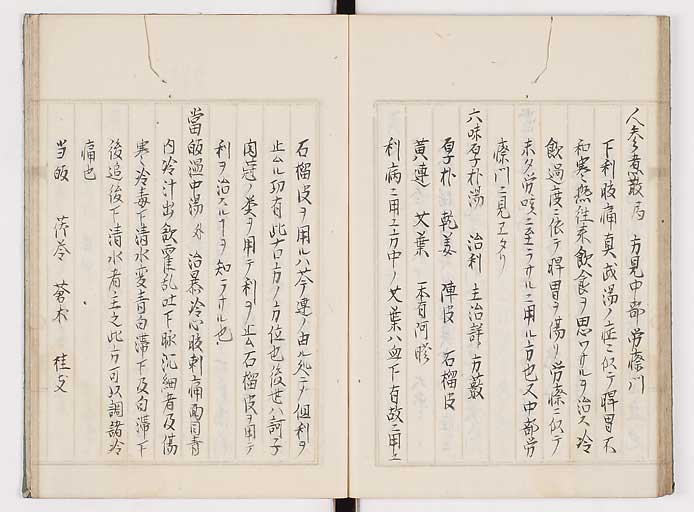 人参煮散局 方見中部労療門
下利腹痛真武湯ノ症ニ似テ脾胃不
和寒熱往来飲食ヲ思ワサルヲ治ス冷
飲過度ニ依テ脾胃ヲ傷リ労療ニ似テ
未タ労咳ニ至ラサルニ用ル方也又中部労
療門ニ見エタリ
六味厚子朴湯 治利 主治詳ニ方薮
厚子朴 乾姜 陳皮 石榴皮
黄連 艾葉 一本有阿膠
利病ニ用ユ方中ノ艾葉ハ血下有故ニ用ユ
石榴皮ヲ用ルハ芩連ノ由ル処ニテ但利ヲ
止ムル功有此古方ノ方位也後世ハ訶子
肉蔲ノ類ヲ用テ利ヲ止ム石榴皮ヲ用テ
利ヲ治スルヿヲ知ラサル也
當皈温中湯 治暴冷心腹刺痛面目青
肉冷汁出欲霍乱吐下脉沉細者及傷
寒冷毒下清水変青白滞下及白滞下
後追後下清水者主之此方可以調諸冷
痛也
当皈 茯苓 蒼朮 桂支